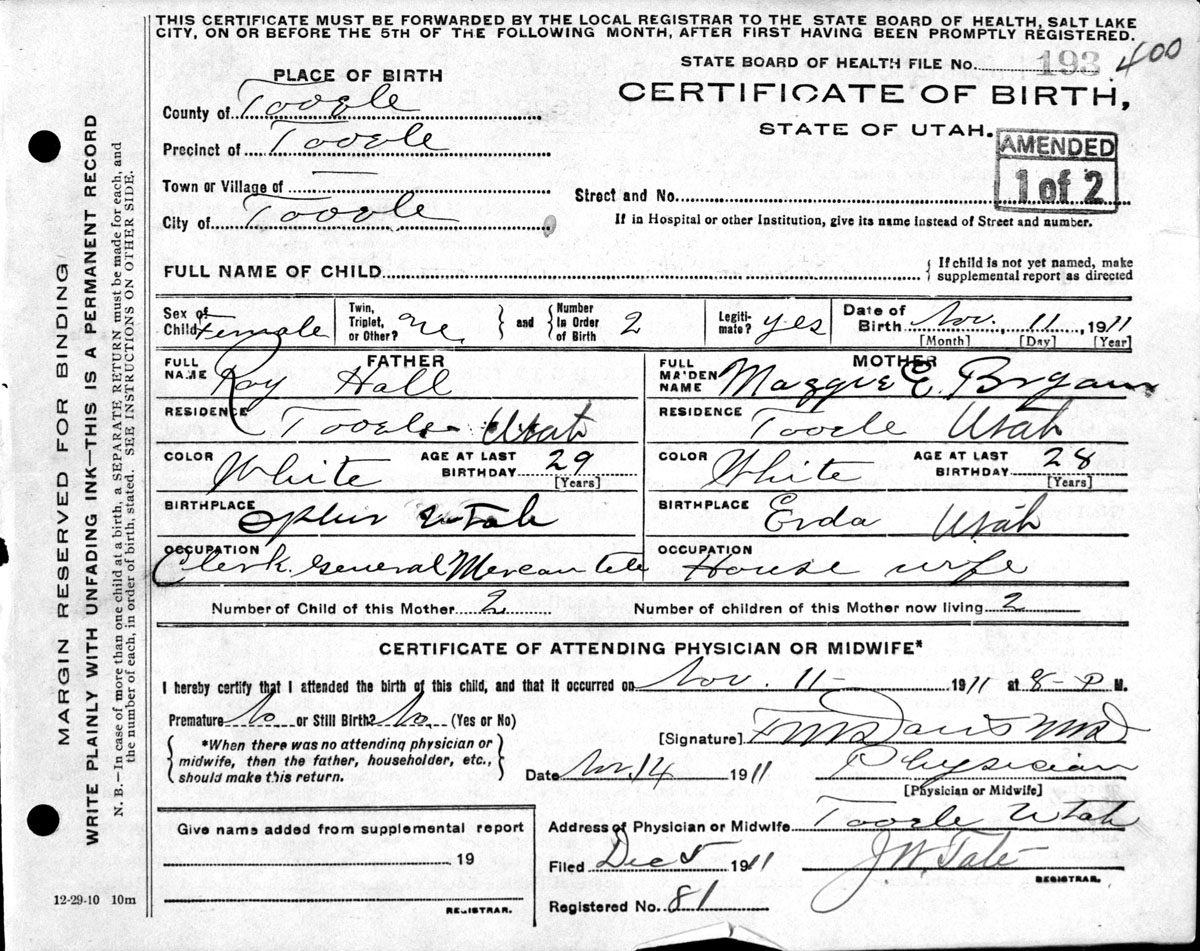 THIS CERTIFICATE MUST BE FORWARDED BY THE LOCAL REGISTRAR TO THE STATE BOARD OF HEALTH, SALT LAKE
CITY, ON OR BEFORE THE 5TH OF THE FOLLOWING MONTH, AFTER FIRST HAVING BEEN PROMPTLY REGISTERED.
STATE BOARD OF HEALTH FILE No. 193 400
PLACE OF BIRTH
CERTIFICATE OF BIRTH,
County of Tooele
STATE OF UTAH.
Precinct of Tooele
AMENDED
1 of 2
Town or Village of —
Street and No.
City of Tooele
If in Hospital or other Institution, give its name instead of Street and number.
FULL NAME OF CHILD
If child is not yet named, make
supplemental report as directed
Sex of Child Female
Twin, Triplet, or Other? One
and
Number In Order of Birth 2
Legiti-mate? yes
Date of Birth Nov. 11, 1911
[Month] [Day] [Year]
FATHER
FULL NAME Roy Hall
RESIDENCE Tooele Utah
COLOR White
AGE AT LAST BIRTHDAY 29
[Years]
BIRTHPLACE Ophir Utah
OCCUPATION Clerk General Mercantile
MOTHER
FULL MAIDEN NAME Maggie E. Bryan
RESIDENCE Tooele Utah
COLOR White
AGE AT LAST BIRTHDAY 28
[Years]
BIRTHPLACE Erda Utah
OCCUPATION House wife
Number of Child of this Mother 2 Number of children of this Mother now living 2
CERTIFICATE OF ATTENDING PHYSICIAN OR MIDWIFE*
I hereby certify that I attended the birth of this child, and that it occurred on Nov. 11 - 1911 at 8 - P M.
Premature No or Still Birth? No (Yes or No)
*When there was no attending physician or
midwife, then the father, householder, etc.,
should make this return.
[Signature] Davis MD
Date Nov. 14 1911 Physician
[Physician or Midwife]
Give name added from supplemental report
19
REGISTRAR.
Address of Physician or Midwife Tooele Utah
Filed Dec 5 1911 J W Tate
REGISTRAR.
Registered No. 81
12-29-10 10m
MARGIN RESERVED FOR BINDING
WRITE PLAINLY WITH UNFADING INK—THIS IS A PERMANENT RECORD
N. B.—In case of more than one child at a birth, a SEPARATE RETURN must be made for each, and
the number of each, in order of birth, stated. SEE INSTRUCTIONS ON OTHER SIDE.